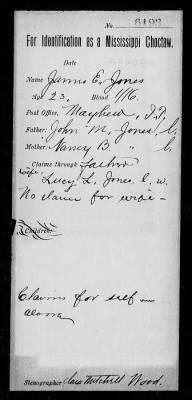 No. 6193
For Identification as a Mississippi Choctaw.
Date
Name James E. Jones
Age 23, Blood 1/16.
Post Office, Mayhew, I.T.
Father: John M. Jones, C.
Mother: Nancy B. " C.
Claims through Father
wife, Lucy L. Jones, C. w.
No claim for wife -
Children:
Claims for self
alone
Stenographer Mitchell Wood.